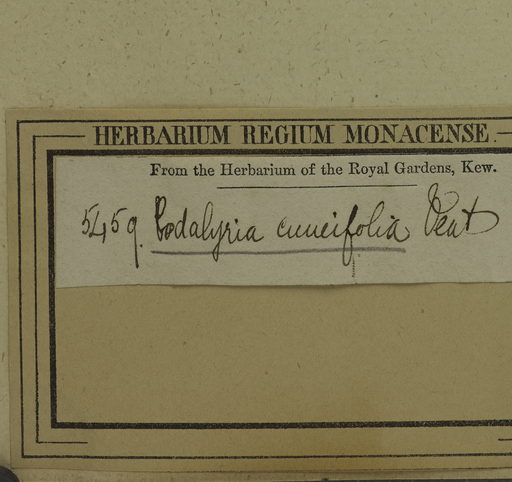 HERBARIUM REGIUM MONACENSE.
From the Herbarium of the Royal Gardens, Kew.
5459. Podalyria cuneifolia Vent